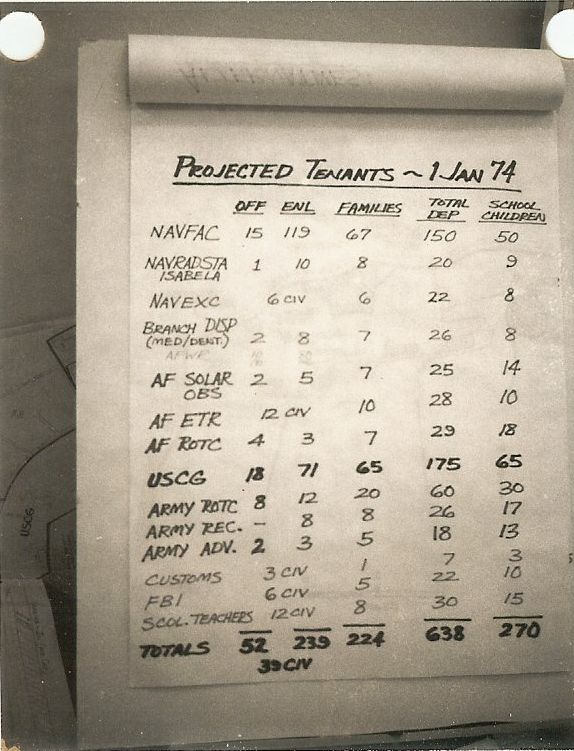 PROJECTED TENANTS ~ 1 JAN 74
OFF ENL FAMILIES TOTAL DEP SCHOOL CHILDREN
NAVFAC 15 119 67 150 50
NAVRADSTA ISABELA 1 10 8 20 9
NAVEXC 6 CIV 6 22 8
BRANCH DISP (MED/DENT.) 2 8 7 26 8
AFWR
AF SOLAR OBS 2 5 7 25 14
AF ETR 12 CIV 10 28 10
AF ROTC 4 3 7 29 18
USCG 18 71 65 175 65
ARMY ROTC 8 12 20 60 30
ARMY REC. – 8 8 26 17
ARMY ADV. 2 3 5 18 13
CUSTOMS 3 CIV 1 7 3
FBI 6 CIV 5 22 10
SCOL. TEACHERS 12 CIV 8 30 15
TOTALS 52 239 224 638 270
39 CIV
USCG